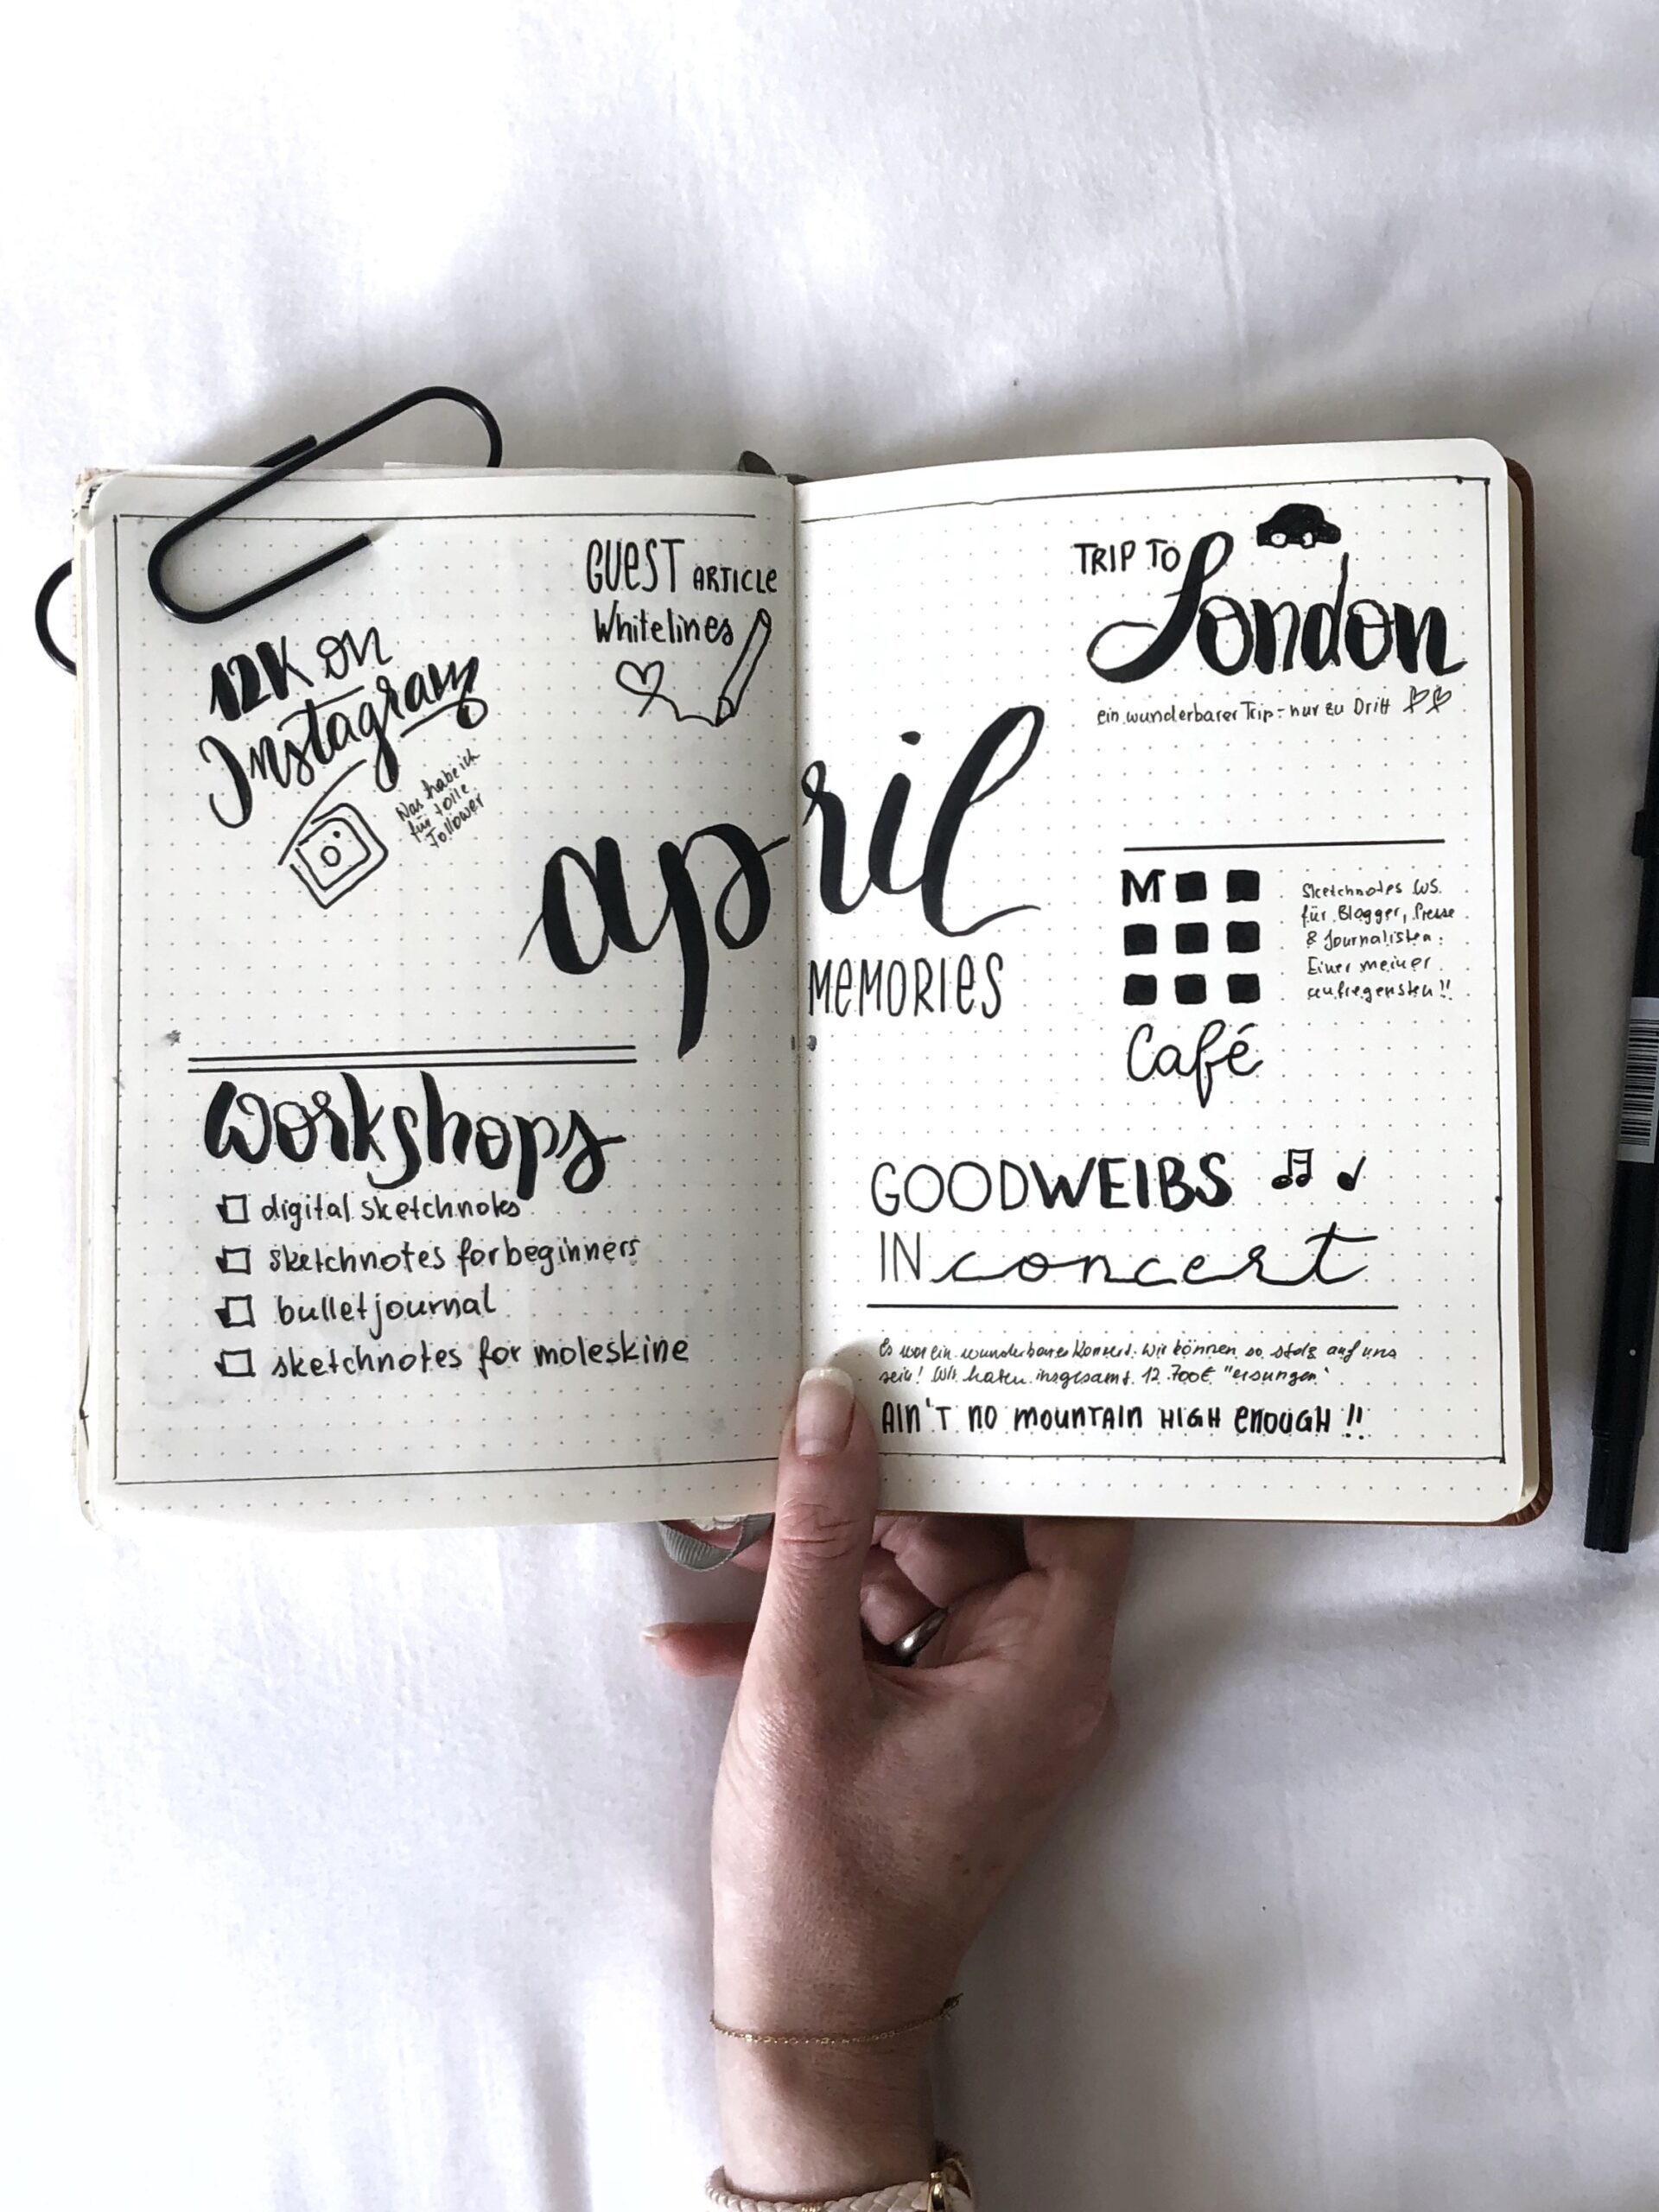 12K on
Instagram
Was habe ich
für tolle
Follower
GUEST ARTICLE
Whitelines
april
MEMORIES
Workshops
digital sketchnotes
sketchnotes for beginners
bullet journal
sketchnotes for moleskine
TRIP TO
London
ein wunderbarer Trip - nur zu Dritt
M
Café
Sketchnotes WS
für Blogger, Presse
& Journalisten.
Einer meiner
aufregensten!!
GOODWEIBS
IN concert
Es war ein wunderbares Konzert. Wir können so stolz auf uns
sein! Wir haben insgesamt 12.700€ "ersungen"
AIN'T NO MOUNTAIN HIGH ENOUGH!!